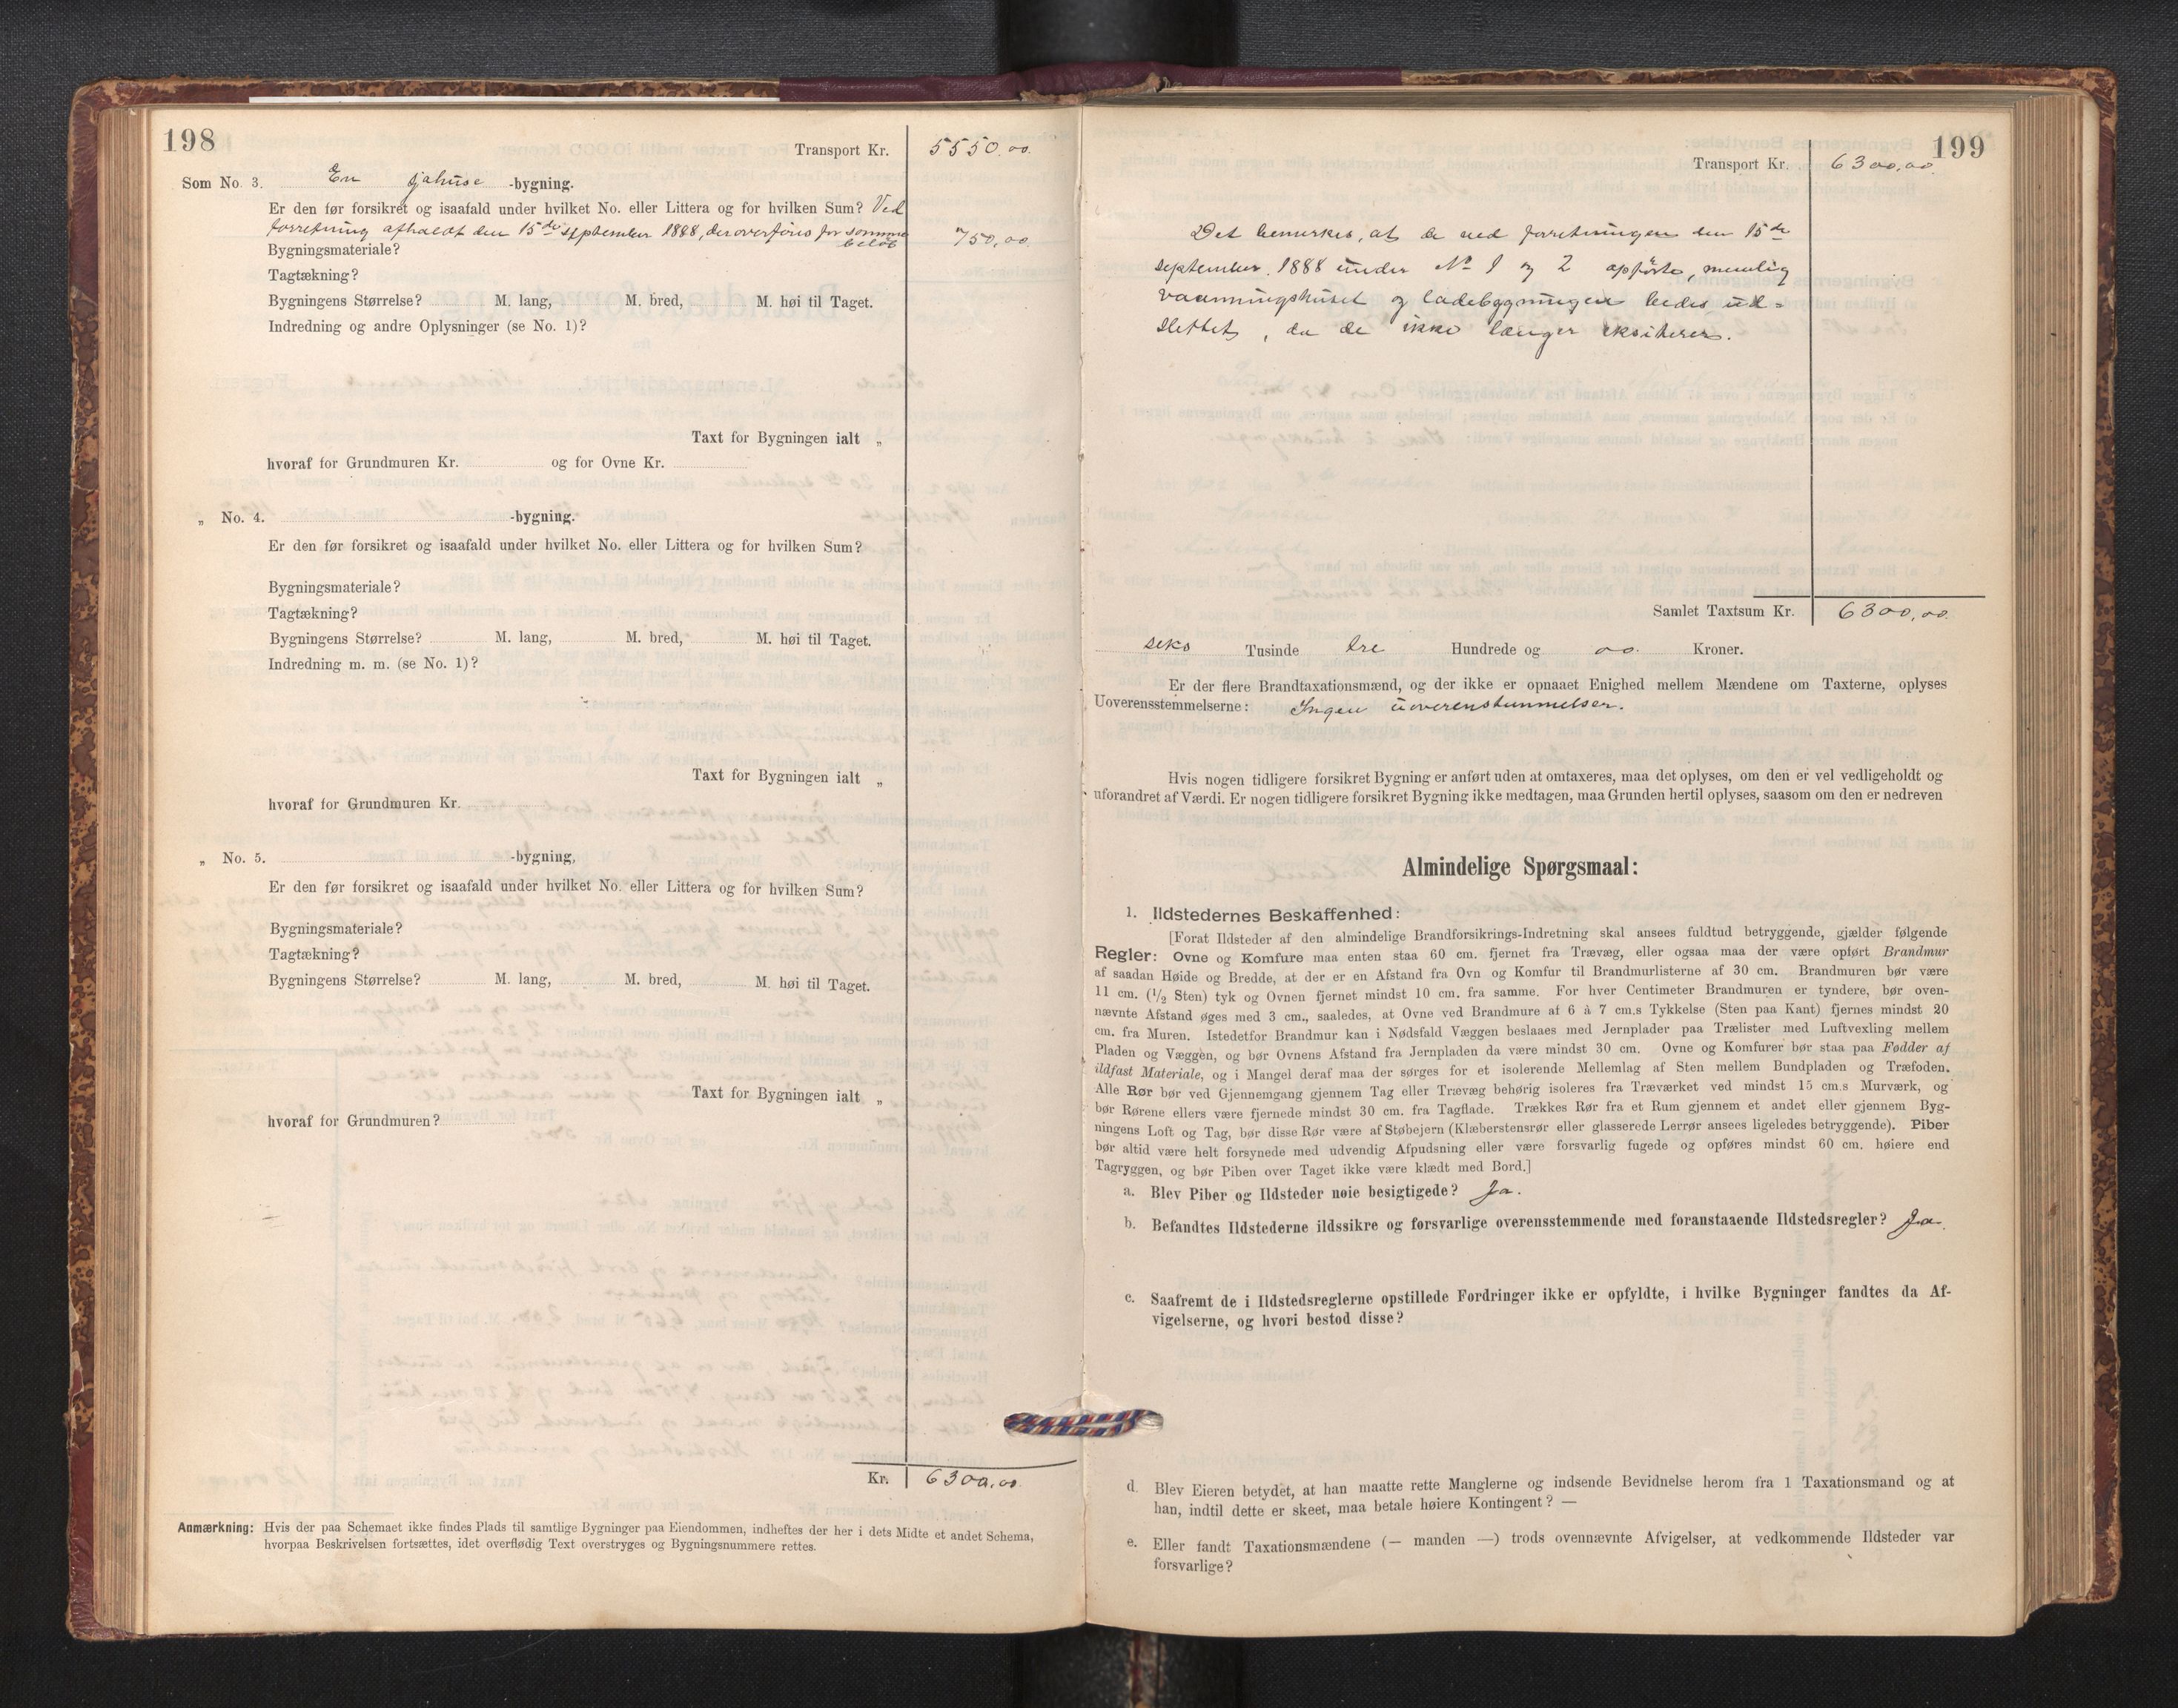 198
Transport Kr. 5550,00.
Som No. 3. En sjøhuse -bygning.
Er den før forsikret og isaafald under hvilket No. eller Littera og for hvilken Sum? Ved
forretning afholdt den 15de september 1888, der overføres for samme
beløb 750,00.
Bygningsmateriale?
Tagtækning?
Bygningens Størrelse? M. lang, M. bred, M. høi til Taget.
Indredning og andre Oplysninger (se No. 1)?
Taxt for Bygningen ialt „
hvoraf for Grundmuren Kr. og for Ovne Kr.
„ No. 4. -bygning.
Er den før forsikret og isaafald under hvilket No. eller Littera og for hvilken Sum?
Bygningsmateriale?
Tagtækning?
Bygningens Størrelse? M. lang, M. bred, M. høi til Taget.
Indredning m. m. (se No. 1)?
Taxt for Bygningen ialt „
hvoraf for Grundmuren Kr.
„ No. 5. -bygning,
Er den før forsikret og isaafald under hvilket No. eller Littera og for hvilken Sum?
Bygningsmateriale?
Tagtækning?
Bygningens Størrelse? M. lang, M. bred, M. høi til Taget.
Taxt for Bygningen ialt „
hvoraf for Grundmuren?
Kr. 6300,00
Anmærkning: Hvis der paa Schemaet ikke findes Plads til samtlige Bygninger paa Eiendommen, indheftes der her i dets Midte et andet Schema,
hvorpaa Beskrivelsen fortsættes, idet overflødig Text overstryges og Bygningsnummere rettes.
199
Transport Kr. 6300,00.
Det bemerkes, at de ved forretningen den 15de
september 1888 under No 1 og 2 opførte, nemlig
vaaningshuset og ladebygningen bedes ud=
slettet, da de ikke længer eksisterer.
Samlet Taxtsum Kr. 6300,00.
seks Tusinde tre Hundrede og 00. Kroner.
Er der flere Brandtaxationsmænd, og der ikke er opnaaet Enighed mellem Mændene om Taxterne, oplyses
Uoverensstemmelserne: Ingen uoverenstemmelser.
Hvis nogen tidligere forsikret Bygning er anført uden at omtaxeres, maa det oplyses, om den er vel vedligeholdt og
uforandret af Værdi. Er nogen tidligere forsikret Bygning ikke medtagen, maa Grunden hertil oplyses, saasom om den er nedreven
Almindelige Spørgsmaal:
1. Ildstedernes Beskaffenhed:
[Forat Ildsteder af den almindelige Brandforsikrings-Indretning skal ansees fuldtud betryggende, gjælder følgende
Regler: Ovne og Komfure maa enten staa 60 cm. fjernet fra Trævæg, eller ogsaa maa der være opført Brandmur
af saadan Høide og Bredde, at der er en Afstand fra Ovn og Komfur til Brandmurlisterne af 30 cm. Brandmuren bør være
11 cm. (1/2 Sten) tyk og Ovnen fjernet mindst 10 cm. fra samme. For hver Centimeter Brandmuren er tyndere, bør oven-
nævnte Afstand øges med 3 cm., saaledes, at Ovne ved Brandmure af 6 à 7 cm.s Tykkelse (Sten paa Kant) fjernes mindst 20
cm. fra Muren. Istedetfor Brandmur kan i Nødsfald Væggen beslaaes med Jernplader paa Trælister med Luftvexling mellem
Pladen og Væggen, og bør Ovnens Afstand fra Jernpladen da være mindst 30 cm. Ovne og Komfurer bør staa paa Fødder af
ildfast Materiale, og i Mangel deraf maa der sørges for et isolerende Mellemlag af Sten mellem Bundpladen og Træfoden.
Alle Rør bør ved Gjennemgang gjennem Tag eller Trævæg behørig isoleres fra Træværket ved mindst 15 cm.s Murværk, og
bør Rørene ellers være fjernede mindst 30 cm. fra Tagflade. Trækkes Rør fra et Rum gjennem et andet eller gjennem Byg-
ningens Loft og Tag, bør disse Rør være af Støbejern (Klæberstensrør eller glasserede Lerrør ansees ligeledes betryggende). Piber
bør altid være helt forsynede med udvendig Afpudsning eller være forsvarlig fugede og opføres mindst 60 cm. høiere end
Tagryggen, og bør Piben over Taget ikke være klædt med Bord.]
a. Blev Piber og Ildsteder nøie besigtigede? Ja.
b. Befandtes Ildstederne ildssikre og forsvarlige overensstemmende med foranstaaende Ildstedsregler? Ja.
c. Saafremt de i Ildstedsreglerne opstillede Fordringer ikke er opfyldte, i hvilke Bygninger fandtes da Af-
vigelserne, og hvori bestod disse?
d. Blev Eieren betydet, at han maatte rette Manglerne og indsende Bevidnelse herom fra 1 Taxationsmand og at
han, indtil dette er skeet, maa betale høiere Kontingent? —
e. Eller fandt Taxationsmændene (— manden —) trods ovennævnte Afvigelser, at vedkommende Ildsteder var
forsvarlige?